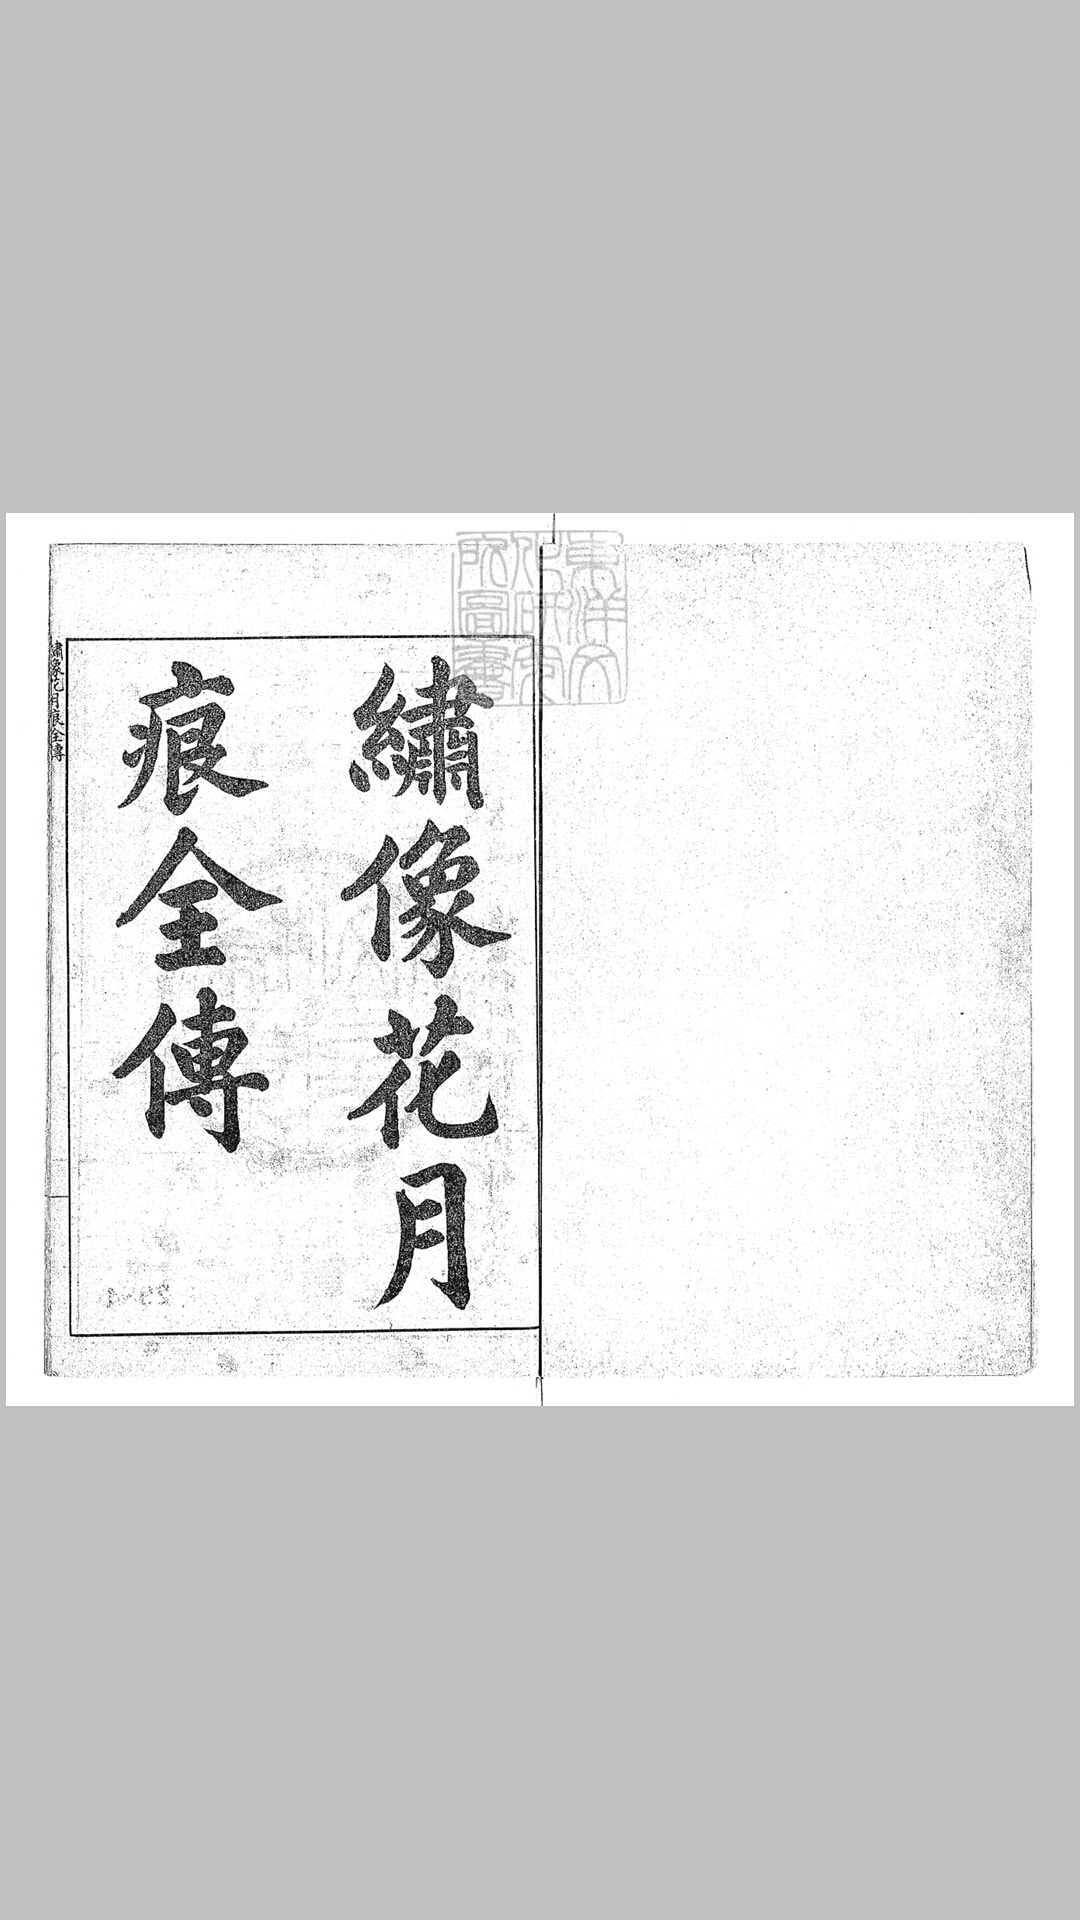 繡像花月
痕全傳
繡像花月痕全傳
東洋文
化研究
所圖書